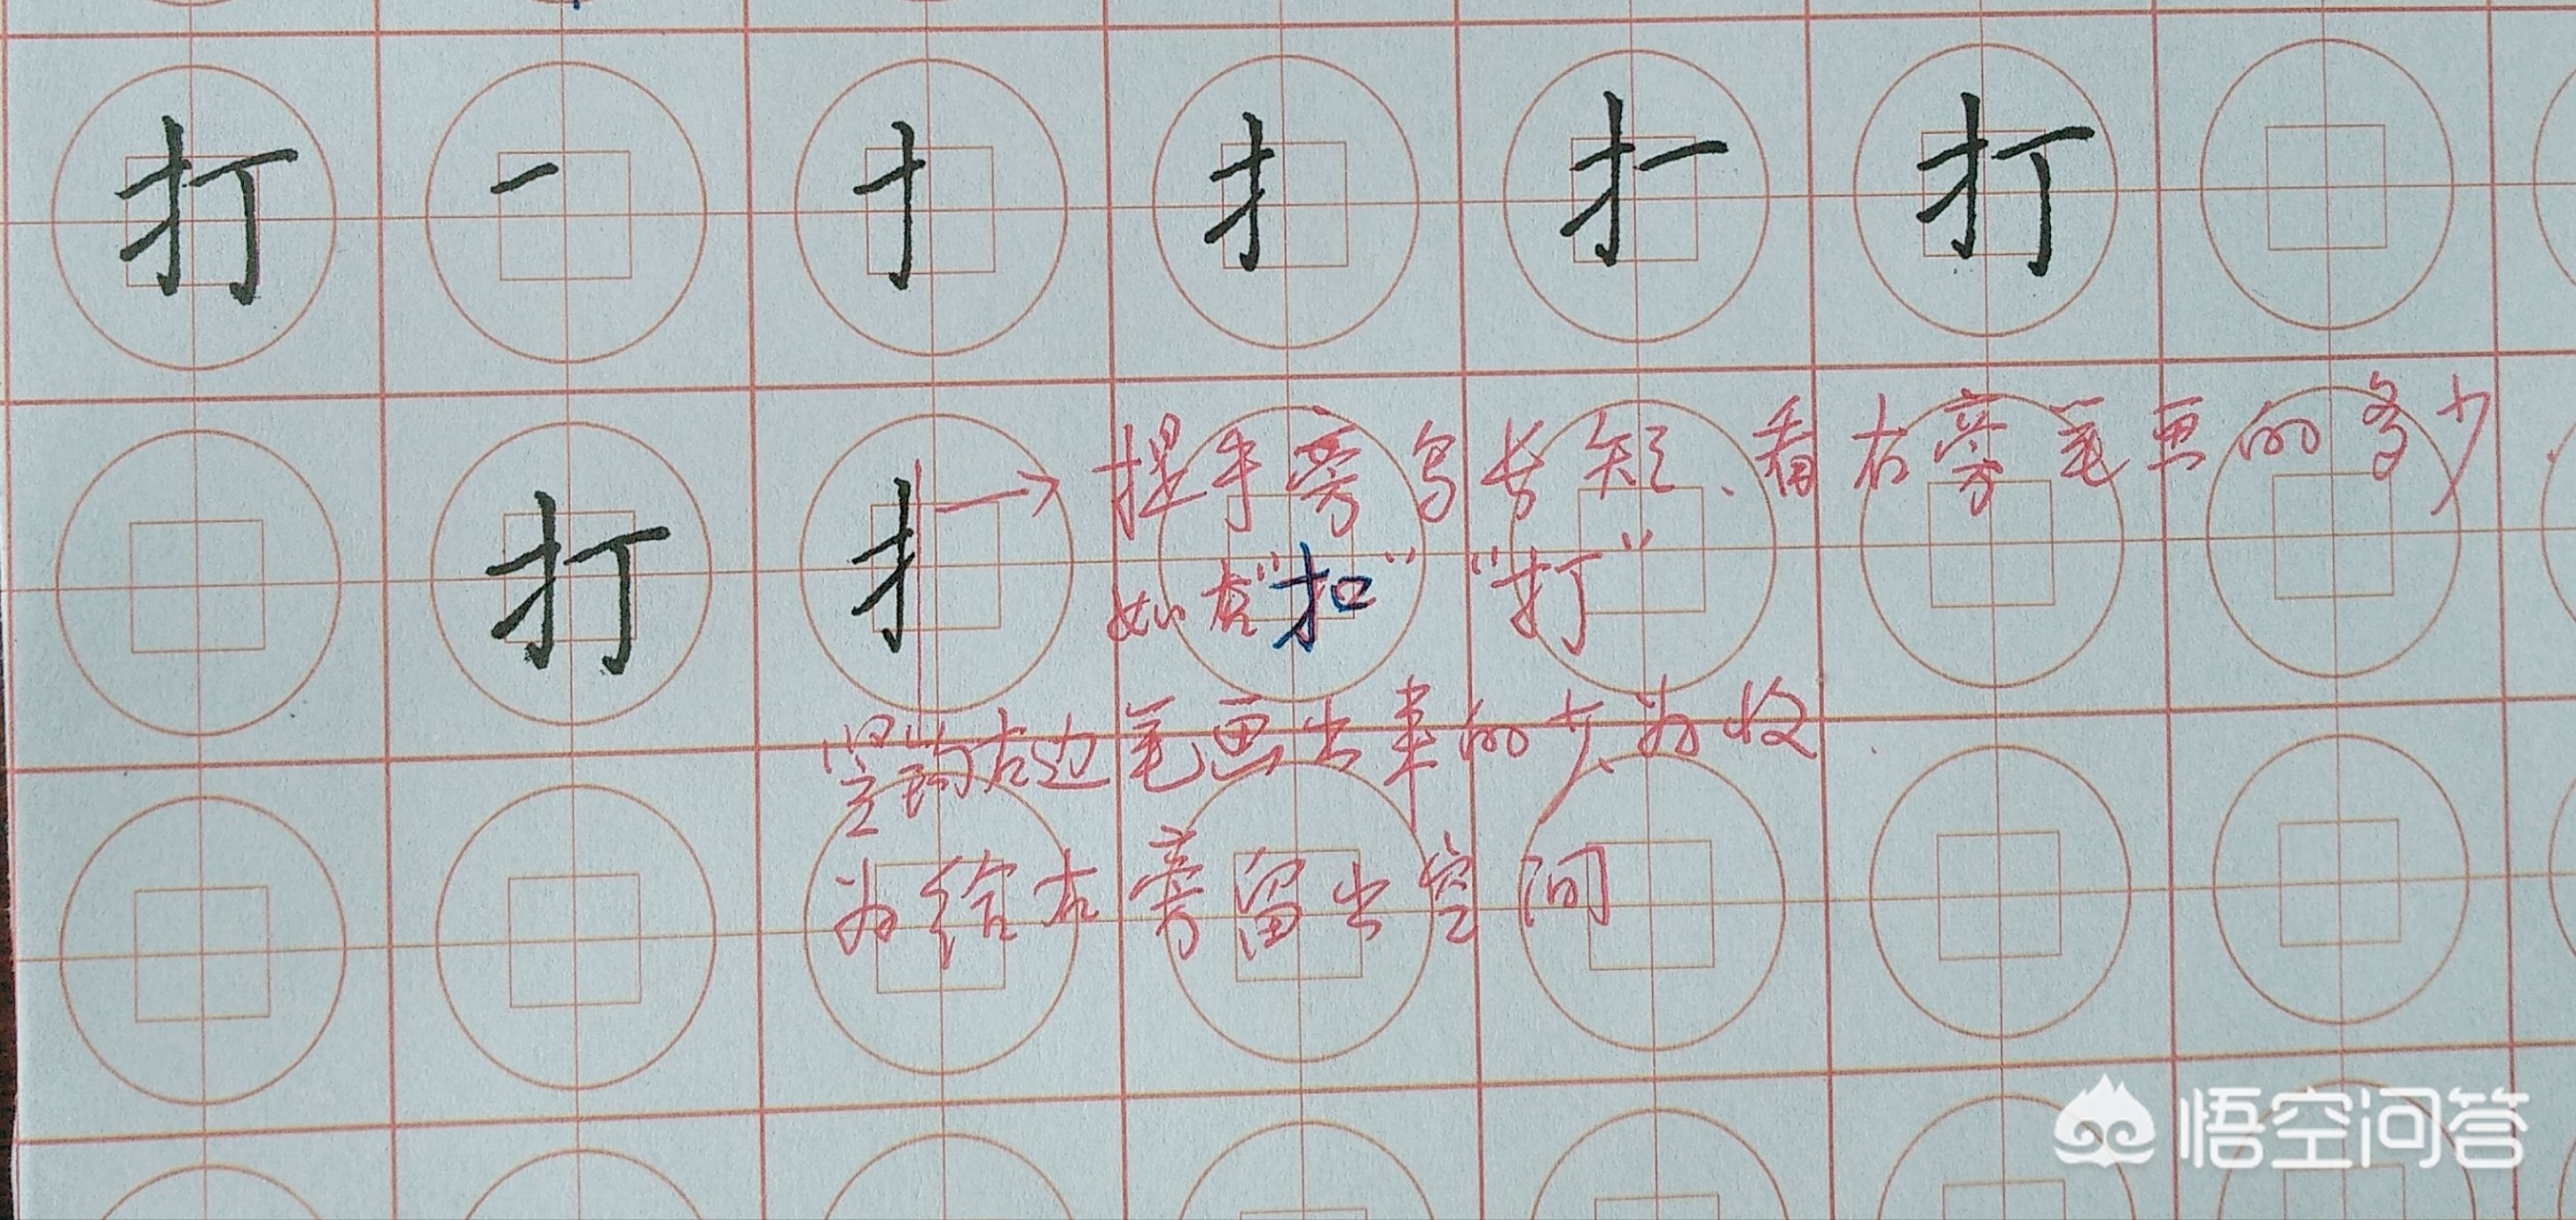 打 一 扌 扌一 打
打 扌 提手旁写长短、看右旁笔画的多少.
如在"扣" "打"
竖钩右边笔画出来的少、为收
为给右旁留出空间
悟空问答